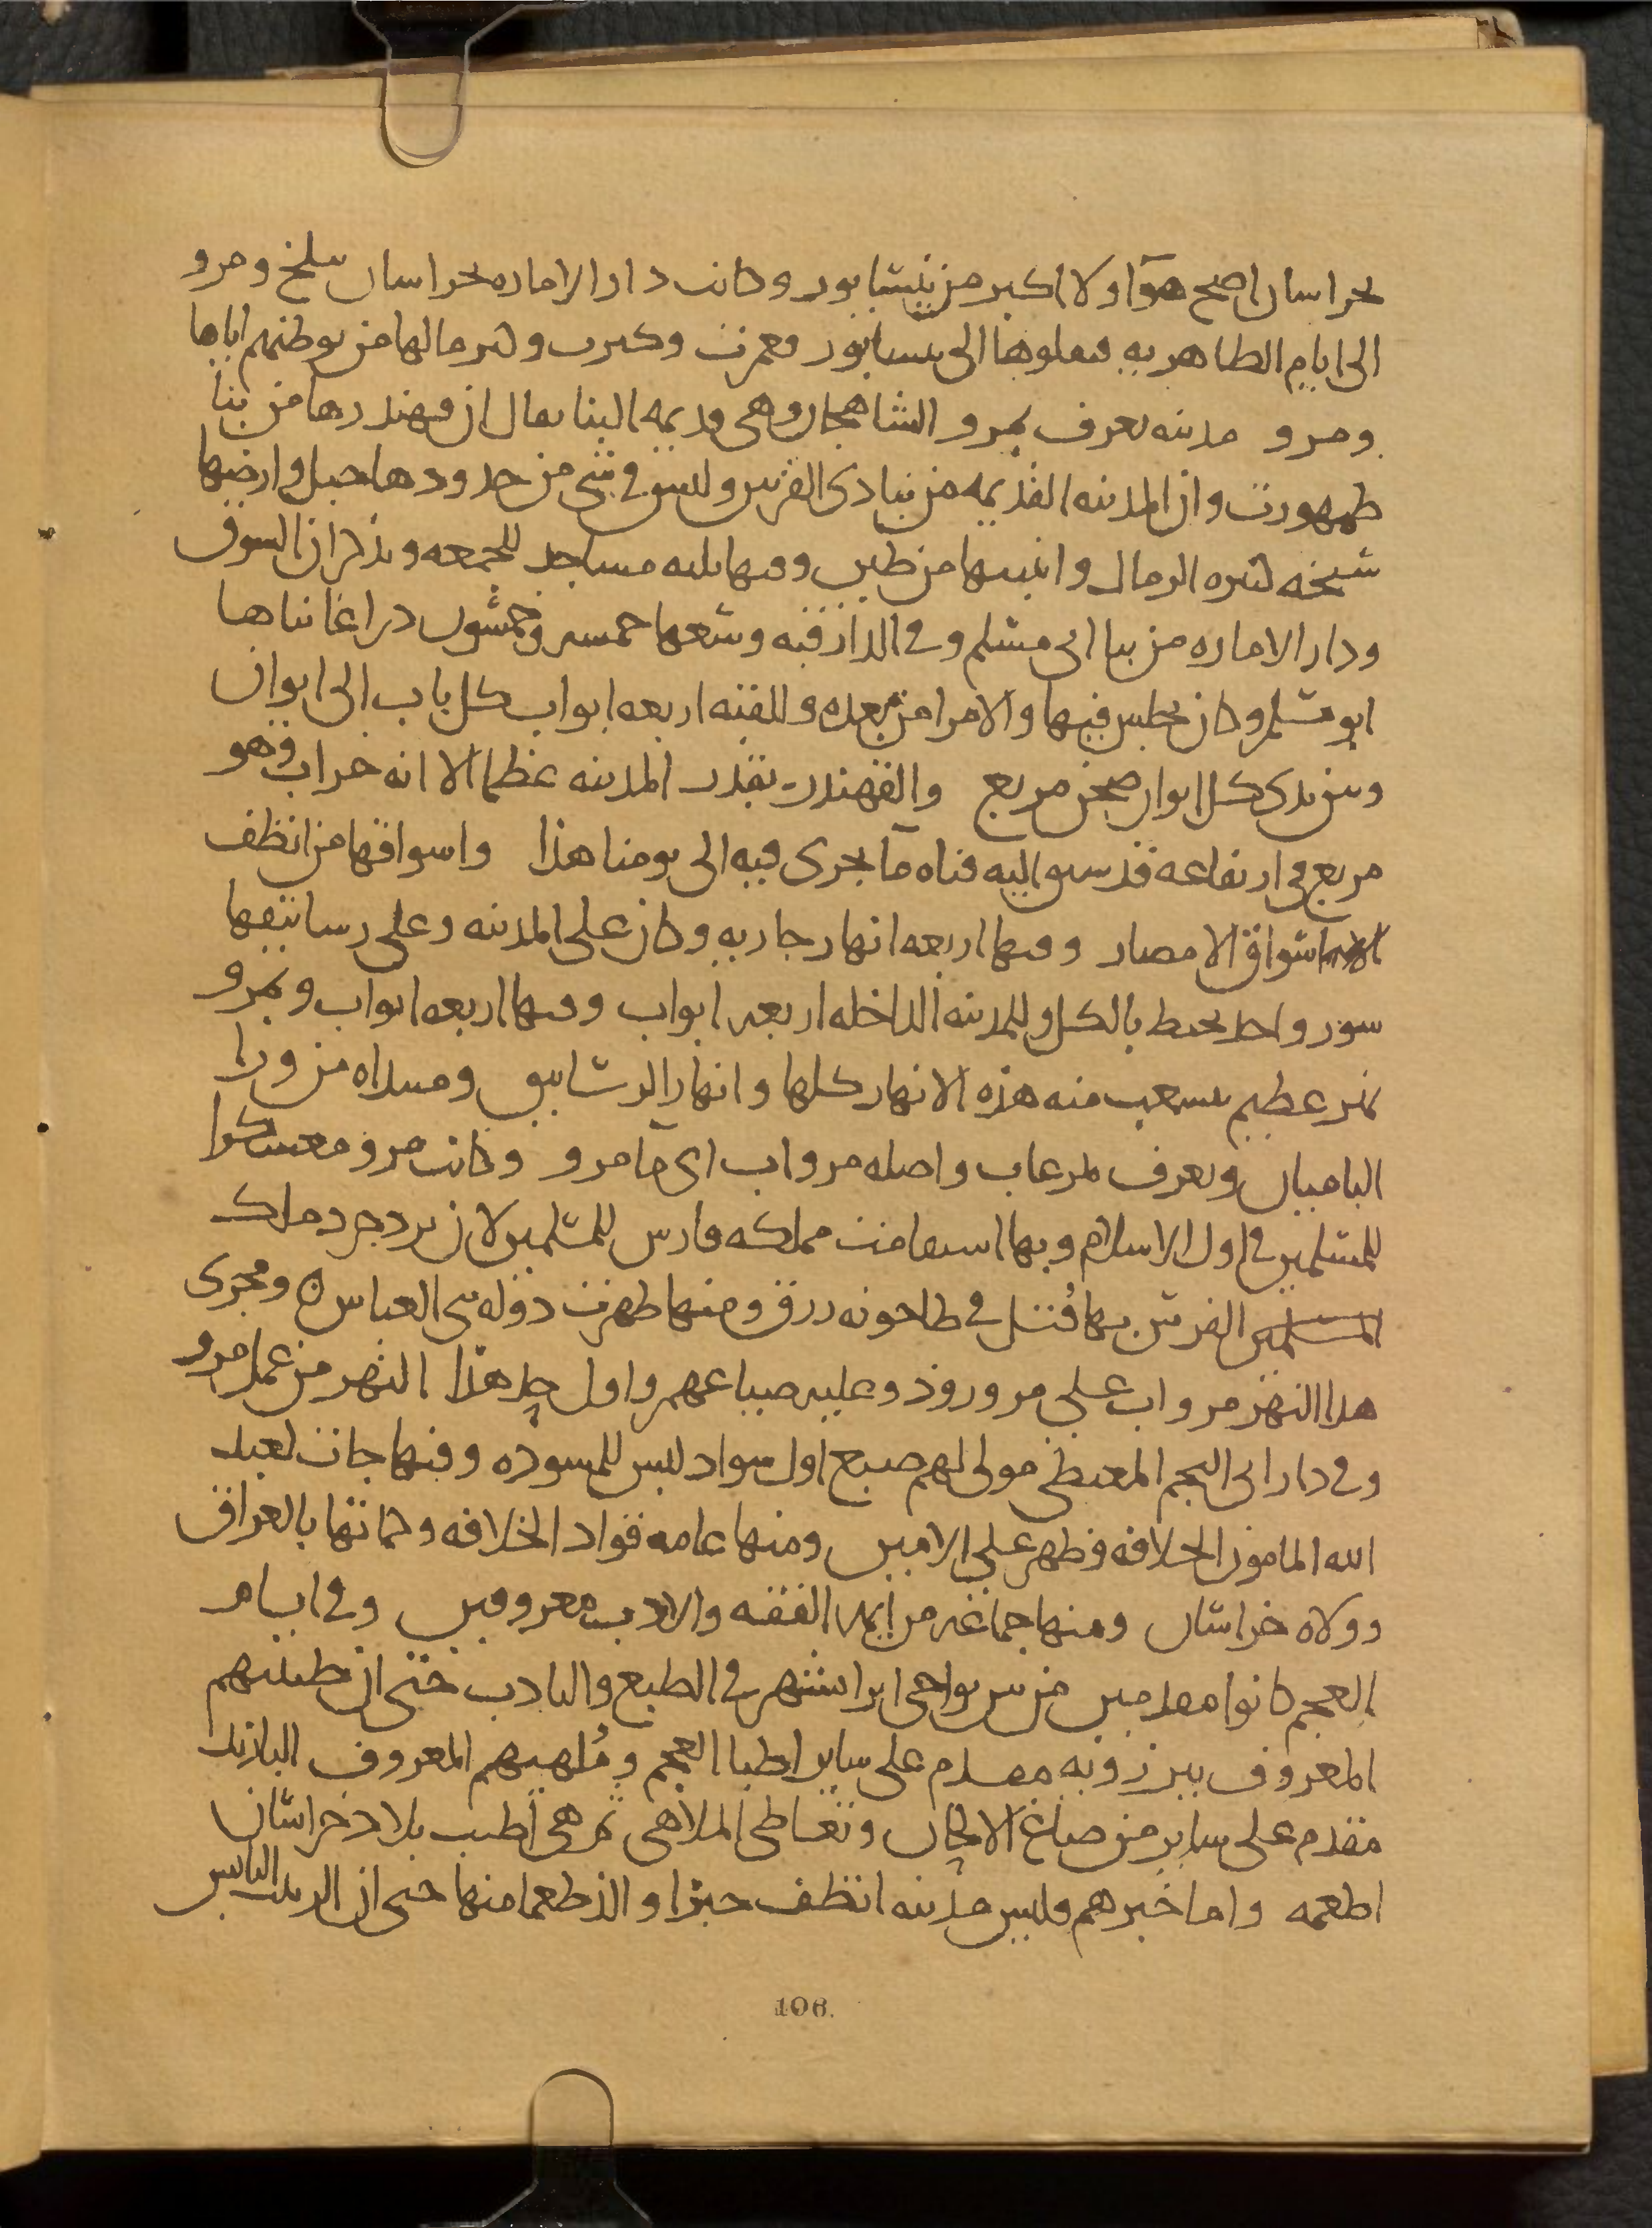 بخراسان اصح هوآ ولا اكبر من نيشابور وكانت دار الاماره بخراسان ببلخ ومرو
الى ايام الطاهريه فنقلوها الى نيسابور فعمرت وكبرت وكثر مالها من توطنهم اياها
ومرو مدينه تعرف بمرو الشاهجان وهى قديمه البنا يقال ان قهندزها من بنا
طهمورت وان المدينه القديمه من بنا ذى القرنين وليس فى شى من حدودها جبل وارضها
سبخه كثيره الرمال وابنيتها من طين وفيها ثلثه مساجد للجمعه ويذكر ان السوق
ودار الاماره من بنا ابى مسلم وفى الدار قبه وسعها خمسه وخمسون دراعا بناها
ابو مسلم وكان يجلس فيها والامرا من بعده وللقبه اربعه ابواب كل باب الى ايوان
وبين يدى كل ايوان صحن مربع والقهندز بقدر المدينه عظما الا انه خراب وهو
مربع فى ارتفاعه قد سيق اليه قناه مآ يجرى فيه الى يومنا هذا واسواقها من انظف
اسواق الامصار وفيها اربعه انهار جاريه وكان على المدينه وعلى رساتيقها
سور واحد يحيط بالكل وللمدينه الداخله اربعه ابواب وفيها اربعه ابواب وبمرو
نهر عظيم يتشعب منه هذه الانهار كلها وانهار الرساتيق ومبداه من ورا
الباميان ويعرف بمرغاب واصله مرواب اى مآ مرو وكانت مرو معسكرا
للمسلمين فى اول الاسلام وبها استقامت مملكه فارس للمسلمين لان يزدجرد ملك
المسلمين الفرس بها قُتل فى طاحونه زرق ومنها ظهرت دوله بنى العباس ٥ ومجرى
هذا النهر مرواب على مرو روذ وعليه ضياعهم واول حد هذا النهر من عمل مرو
وفى دار ابى النجم المعيطى مولى لهم صبغ اول سواد لبس للمسوده وفيها جات لعبد
الله المامون الخلافه وظهر على الامين ومنها عامه قواد الخلافه وكتابها بالعراق
وولاه خراسان ومنها جماعه من ايمه الفقه والادب معروفين وفى ايام
العجم كانوا مقدمين من بين نواحى ايرانشهر فى الطبع والتادب حتى ان طبيبهم
المعروف ببرزويه مقدم على ساير اطبا العجم ومُلهيهم المعروف الباربد
مقدم على ساير من صاغ الالحان وتعاطى الملاهى ثم هى اطيب بلاد خراسان
اطعمه واما خبزهم فليس مدينه انظف خبزا والذ طعما منها حتى ان الزبيب اليابس
106.